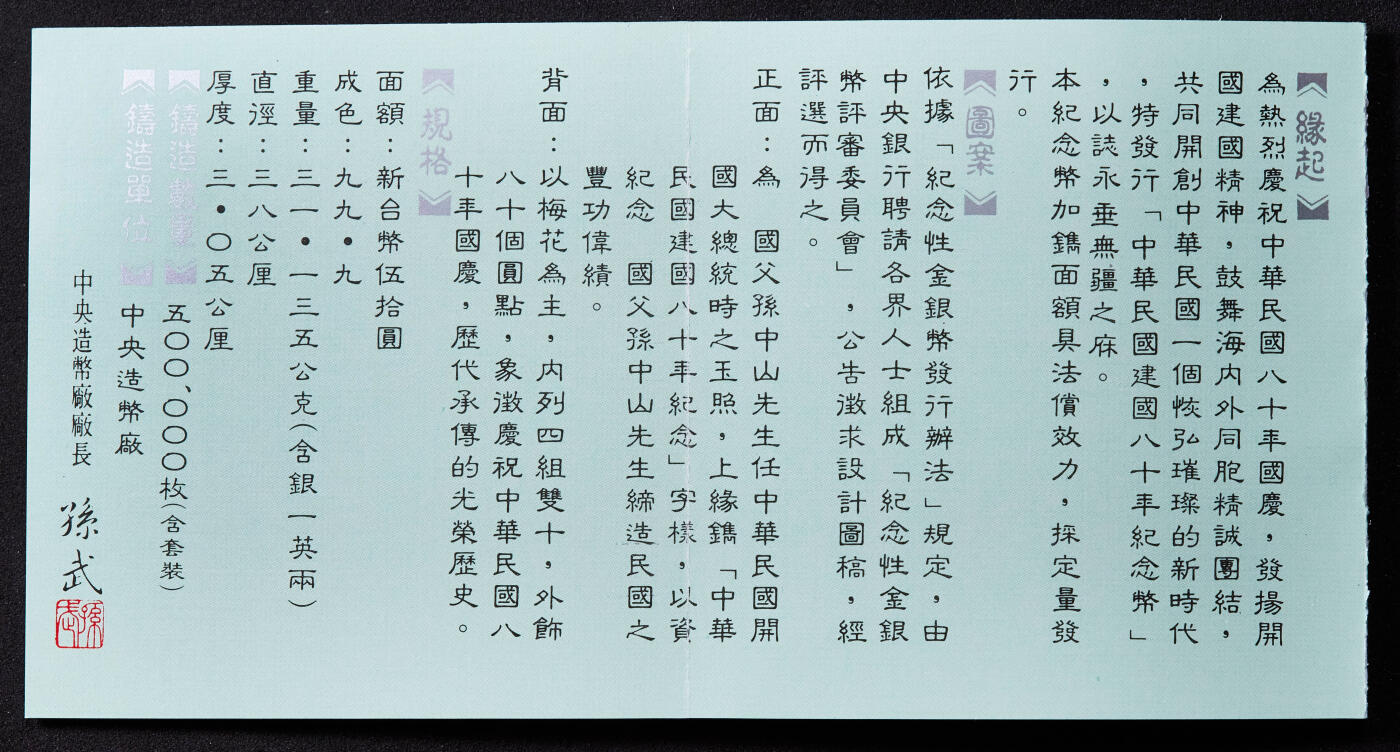 緣起
為熱烈慶祝中華民國八十年國慶，發揚開
國建國精神，鼓舞海內外同胞精誠團結，
共同開創中華民國一個恢弘璀璨的新時代
，特發行「中華民國建國八十年紀念幣」
，以誌永垂無疆之庥。
本紀念幣加鐫面額具法償效力，採定量發
行。
圖案
依據「紀念性金銀幣發行辦法」規定，由
中央銀行聘請各界人士組成「紀念性金銀
幣評審委員會」，公告徵求設計圖稿，經
評選而得之。
正面：為　國父孫中山先生任中華民國開
國大總統時之玉照，上緣鐫「中華
民國建國八十年紀念」字樣，以資
紀念　國父孫中山先生締造民國之
豐功偉績。
背面：以梅花為主，內列四組雙十，外飾
八十個圓點，象徵慶祝中華民國八
十年國慶，歷代承傳的光榮歷史。
規格
面額：新台幣伍拾圓
成色：九九•九
重量：三一•一三五公克（含銀一英兩）
直徑：三八公厘
厚度：三•〇五公厘
鑄造數量　五〇〇、〇〇〇枚（含套裝）
鑄造單位　中央造幣廠
中央造幣廠廠長　孫武
孫武